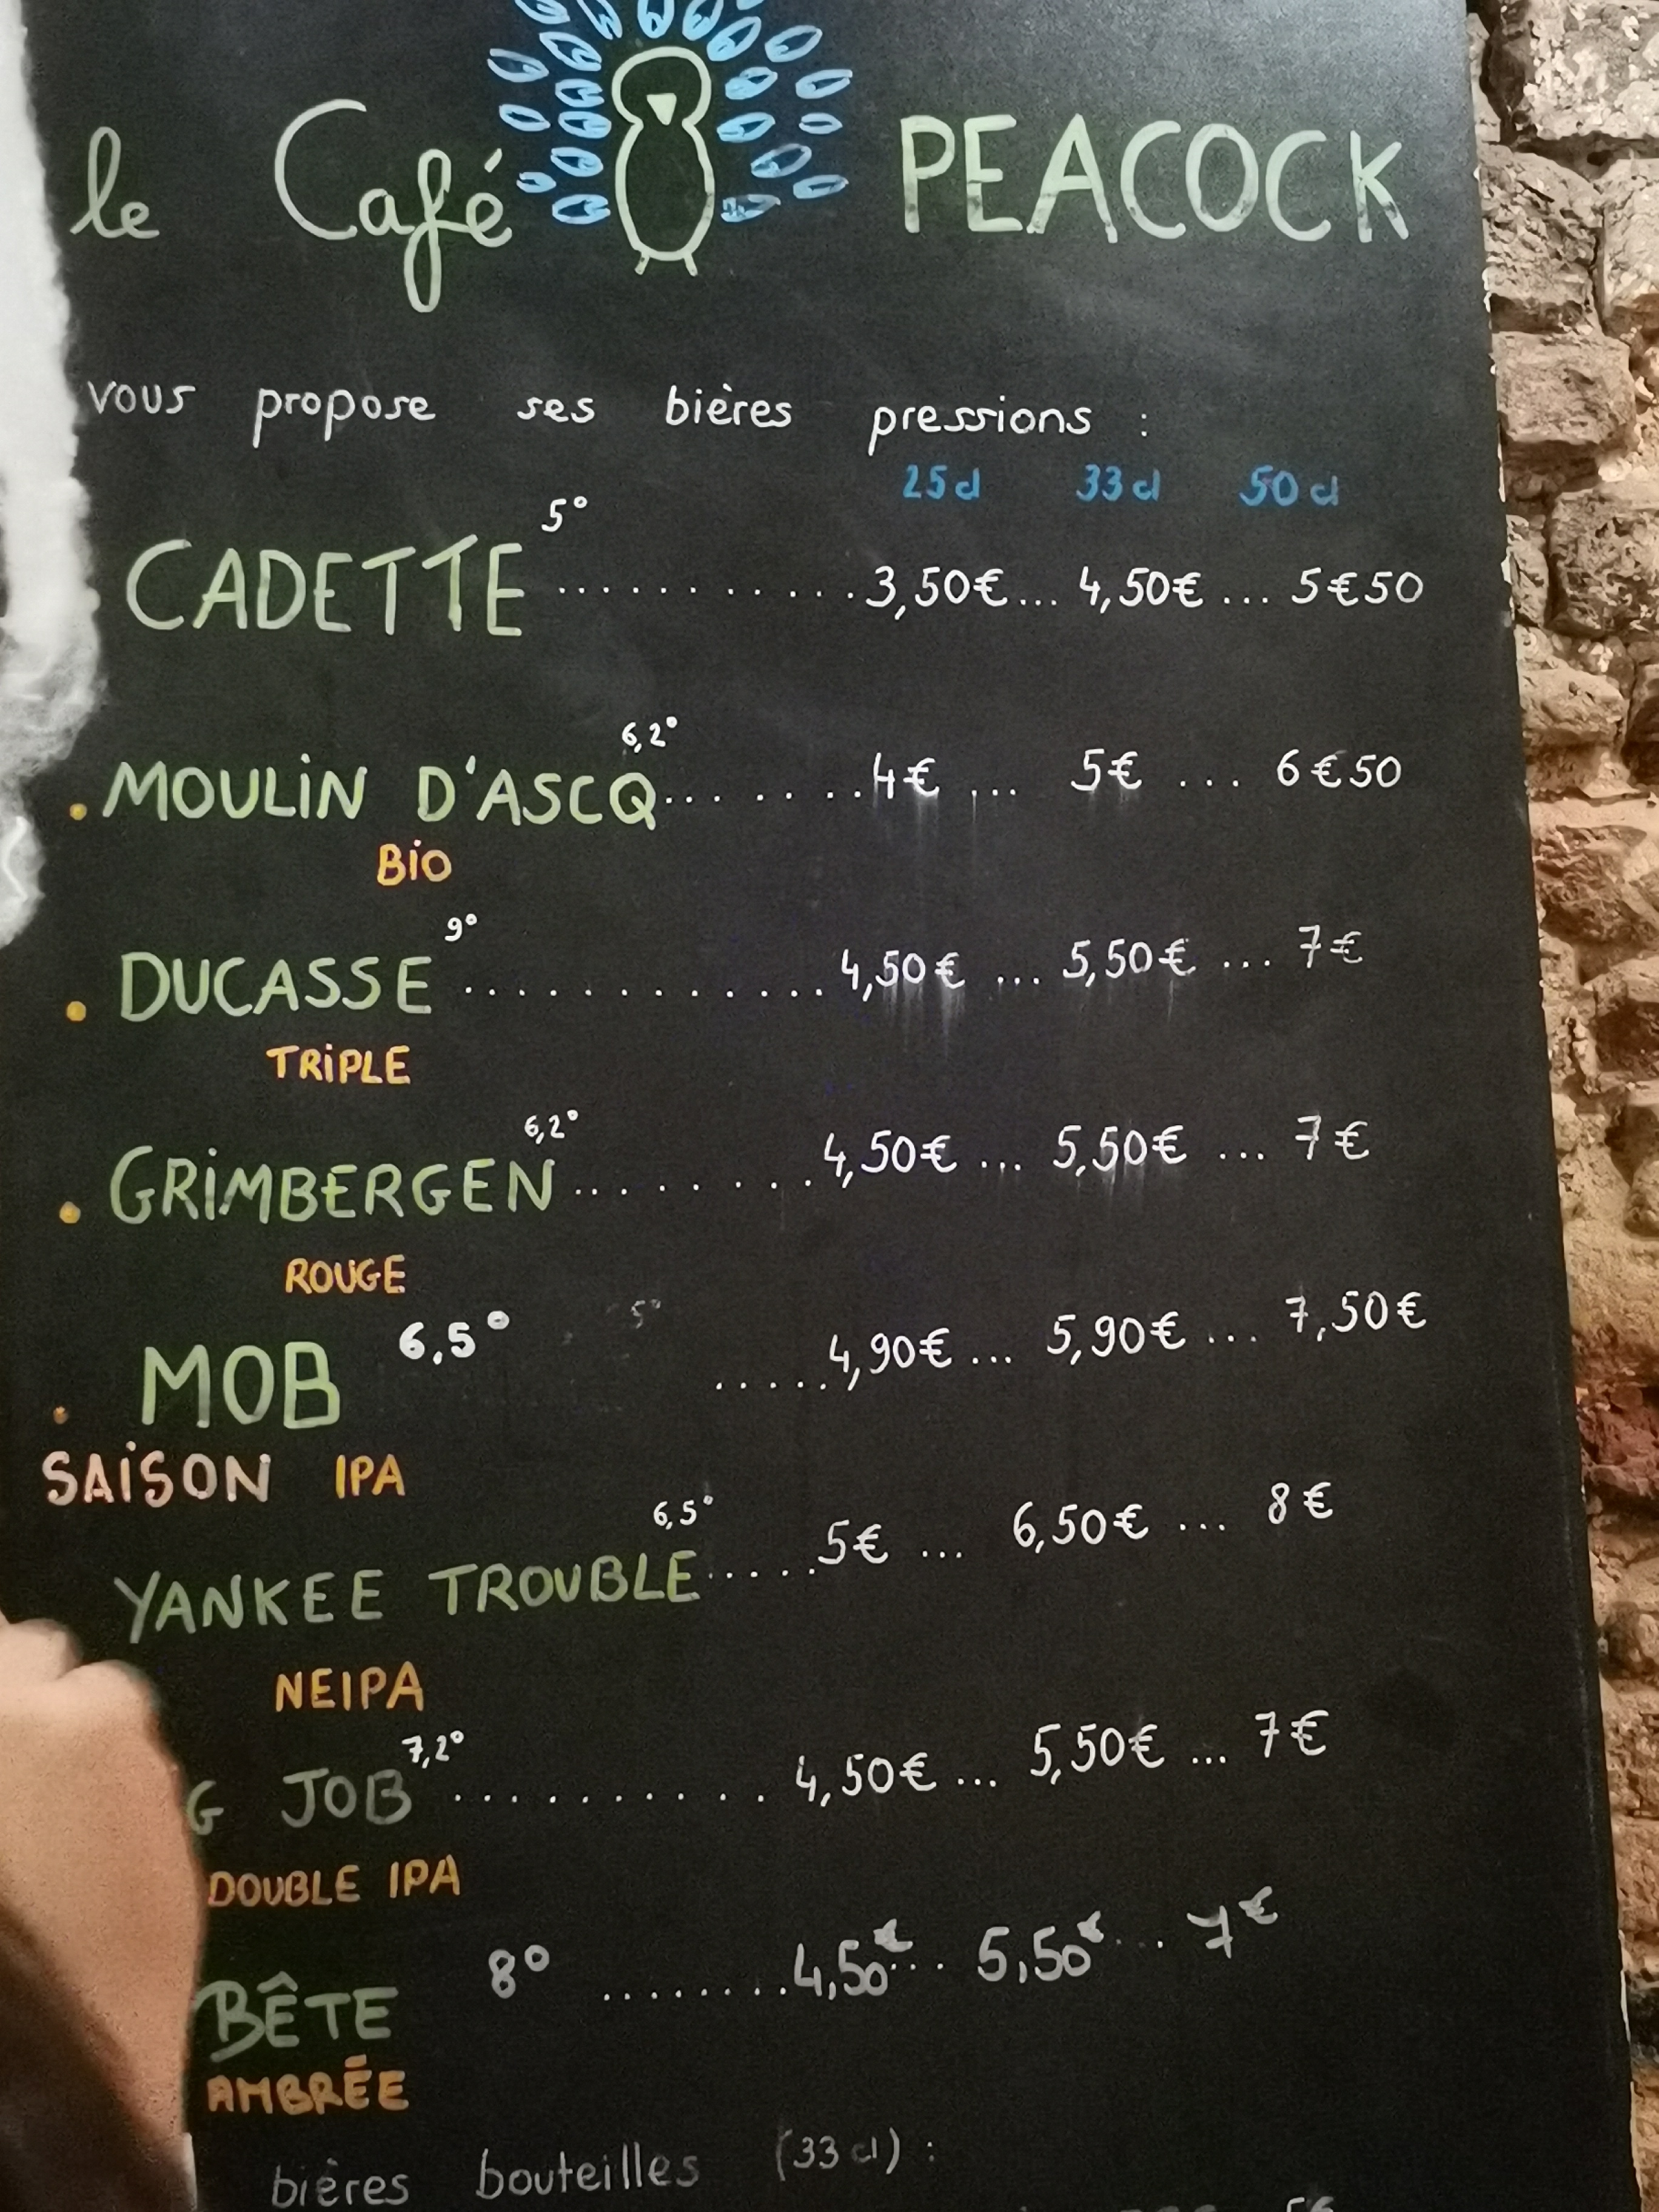 le Café PEACOCK
vous propose ses bières pressions :
25cl 33cl 50cl
5°
CADETTE ........... 3,50€ ... 4,50€ ... 5€50
6,2°
. MOULIN D'ASCQ ....... 4€ ... 5€ ... 6€50
BIO
9°
. DUCASSE ............. 4,50€ ... 5,50€ ... 7€
TRIPLE
6,2°
. GRIMBERGEN ........ 4,50€ ... 5,50€ ... 7€
ROUGE
. MOB 6,5° 5° ..... 4,90€ ... 5,90€ ... 7,50€
SAISON IPA
6,5°
YANKEE TROUBLE ..... 5€ ... 6,50€ ... 8€
NEIPA
7,2°
G JOB ........... 4,50€ ... 5,50€ ... 7€
DOUBLE IPA
BÊTE 8° ........ 4,50€ ... 5,50€ ... 7€
AMBRÉE
bières bouteilles (33cl) :